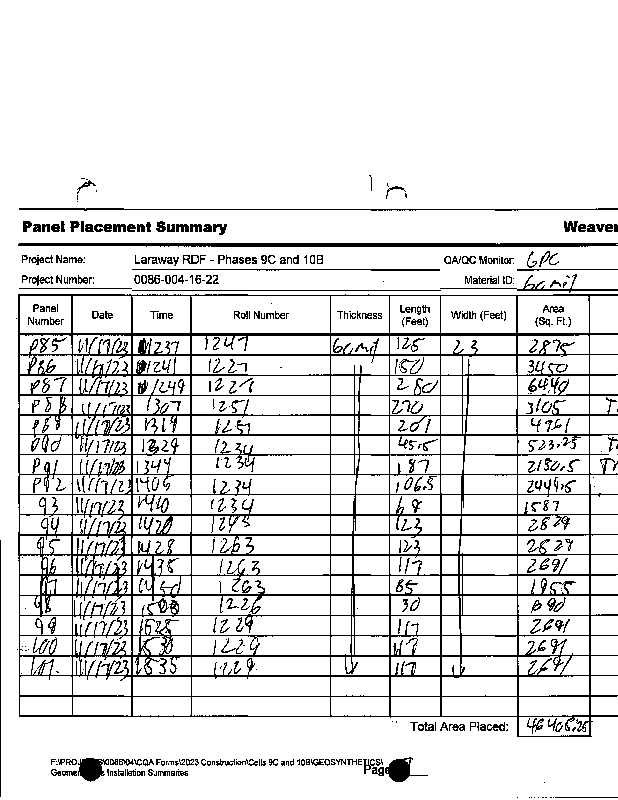 Panel Placement Summary Weaver
Project Name: Laraway RDF - Phases 9C and 10B QA/QC Monitor: GPC
Project Number: 0086-004-16-22 Material ID: 60 mil
Panel Number Date Time Roll Number Thickness Length (Feet) Width (Feet) Area (Sq. Ft.)
P85 11/17/23 1237 1247 60 mil 125 23 2875
P86 11/17/23 1241 1227 150 3450
P87 11/17/23 1249 1227 280 6440
P88 11/17/23 1307 1251 270 3105
P89 11/17/23 1319 1251 207 4761
P90 11/17/23 1329 1234 45.5 523.25
P91 11/17/23 1344 1234 187 2150.5
P92 11/17/23 1405 1234 106.5 2449.5
93 11/17/23 1410 1234 69 1587
94 11/17/23 1420 1243 123 2829
95 11/17/23 1428 1263 123 2829
96 11/17/23 1438 1263 117 2691
97 11/17/23 1450 1263 85 1955
98 11/17/23 1226 30 690
99 11/17/23 1229 117 2691
100 11/17/23 1530 1229 117 2691
101 11/17/23 1229 117 2691
Total Area Placed:
F:\PROJ 0086\04\CQA Forms\2023 Construction\Cells 9C and 10B\GEOSYNTHETICS\
Installation Summaries Page